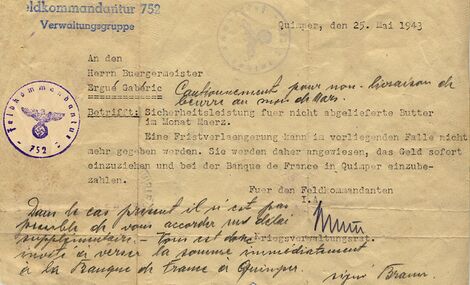 eldkommandantur 752
Verwaltungsgruppe
Quimper, den 25. Mai 1943
An den
Herrn Buergermeister
Ergué Gabéric
Cautionnement pour non-livraison de
beurre au mois de Mars.
Betrifft: Sicherheitsleistung fuer nicht abgelieferte Butter
im Monat Maerz.
Feldkommandantur
- 752 -
Eine Fristverlaengerung kann im vorliegenden Falle nicht
mehr gegeben werden. Sie werden daher angewiesen, das Geld sofort
einzuziehen und bei der Banque de France in Quimper einzube-
zahlen.
Fuer den Feldkommandanten
I.A.
Kriegsverwaltungsrat.
Dans le cas présent il n'est pas
possible de vous accorder un délai
supplémentaire. - Vous est donc
invité à verser la somme immédiatement
à la Banque de France à Quimper.
signé